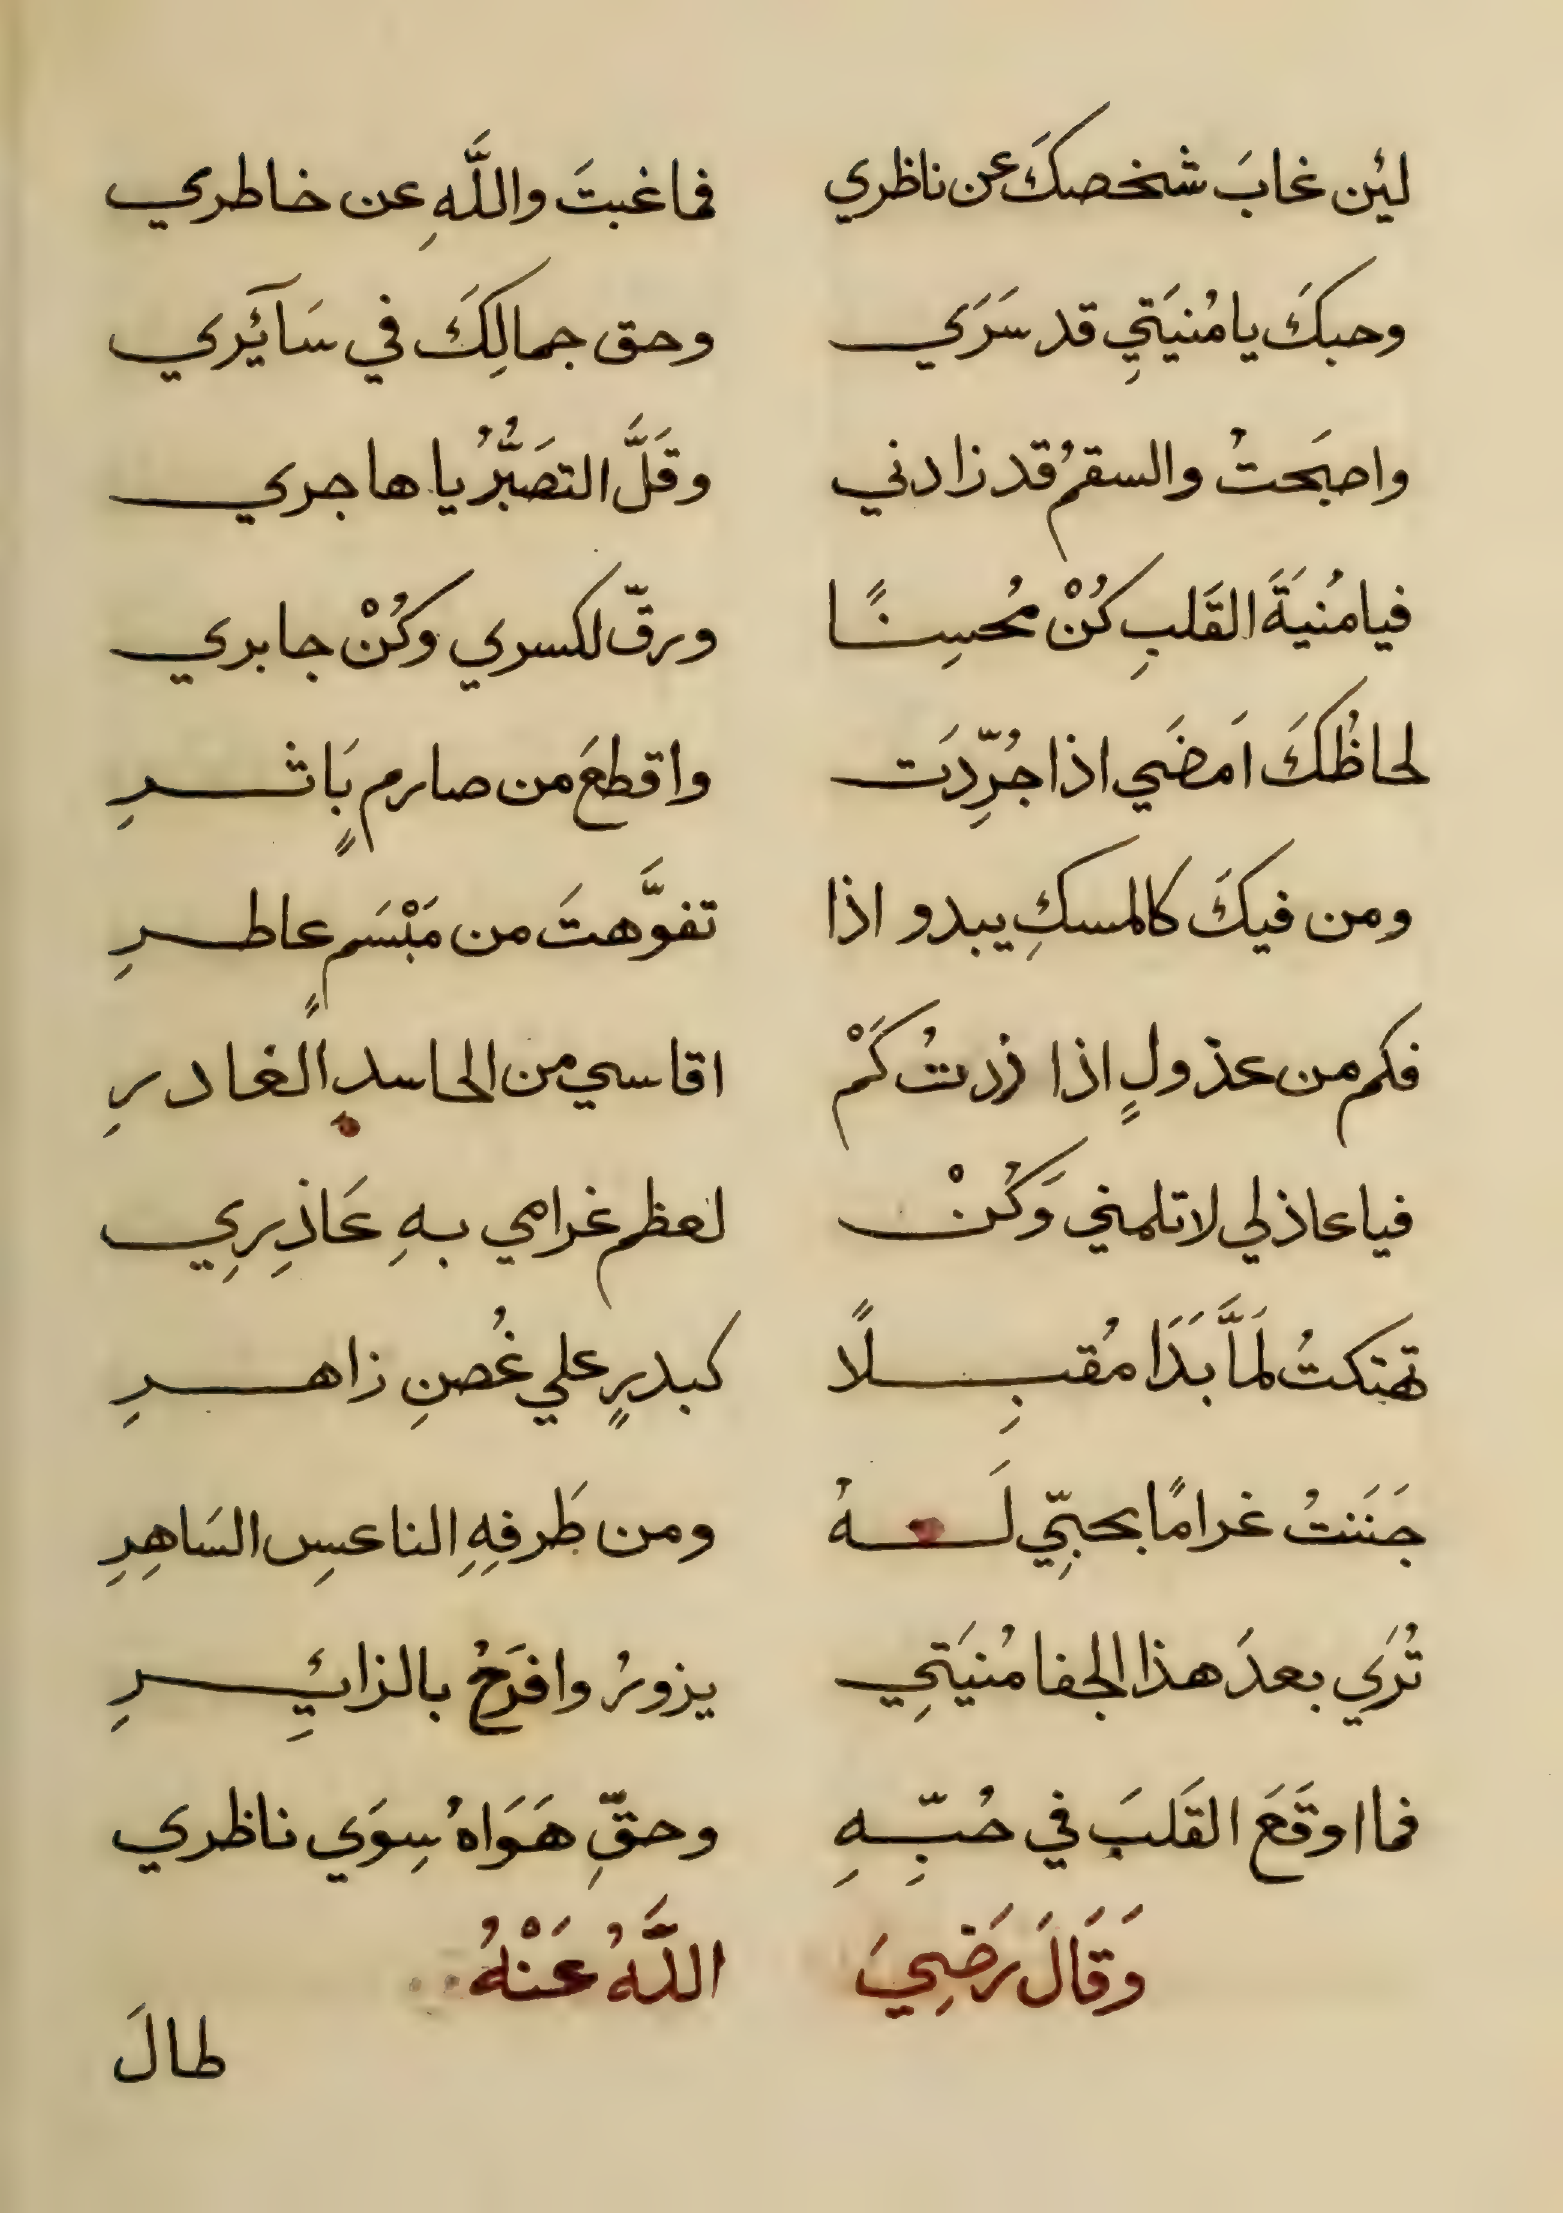 لئن غابَ شخصكَ عن ناظري فما غبتَ واللَّهِ عن خاطري
وحبكَ يا مُنيَتِي قد سَرَي وحق جمالِكَ في سَآئَري
واصبَحتُ والسقمُ قد زادني وقَلَّ التصَبُّرُ يا هاجري
فيا مُنيَةَ القَلبِ كُنْ مُحسِنًا ورقّ لكسري وكُنْ جابري
لحاظُكَ اَمضَي اذا جُرِّدَت واقطعَ من صارمٍ بَاتــرِ
ومن فيكَ كالمسكِ يبدو اذا تفوَّهتَ من مَبْسَمٍ عاطــرِ
فكم من عذولٍ اذا زرتُ كَمْ اقاسي من الحاسد الغادرِ
فيا عاذلي لا تلمني وَكُنْ لعظم غرامي بهِ عَاذِرِي
تهتكتُ لَمَّا بَدَا مُقبِـلًا كبدرٍ علي غُصنِ زاهــرِ
جَنَنتُ غرامًا بحبِّي لَــهُ ومن طَرفِهِ الناعسِ السَاهِرِ
تُرَي بعدَ هذا الجفا مُنيَتِي يزورُ وافرَحُ بالزائِــرِ
فما اوقَعَ القَلبَ في حُبِّــهِ وحقِّ هَوَاهُ سِوَي ناظري
وَقَالَ رَضِيَ اللَّهُ عَنْهُ
طالَ